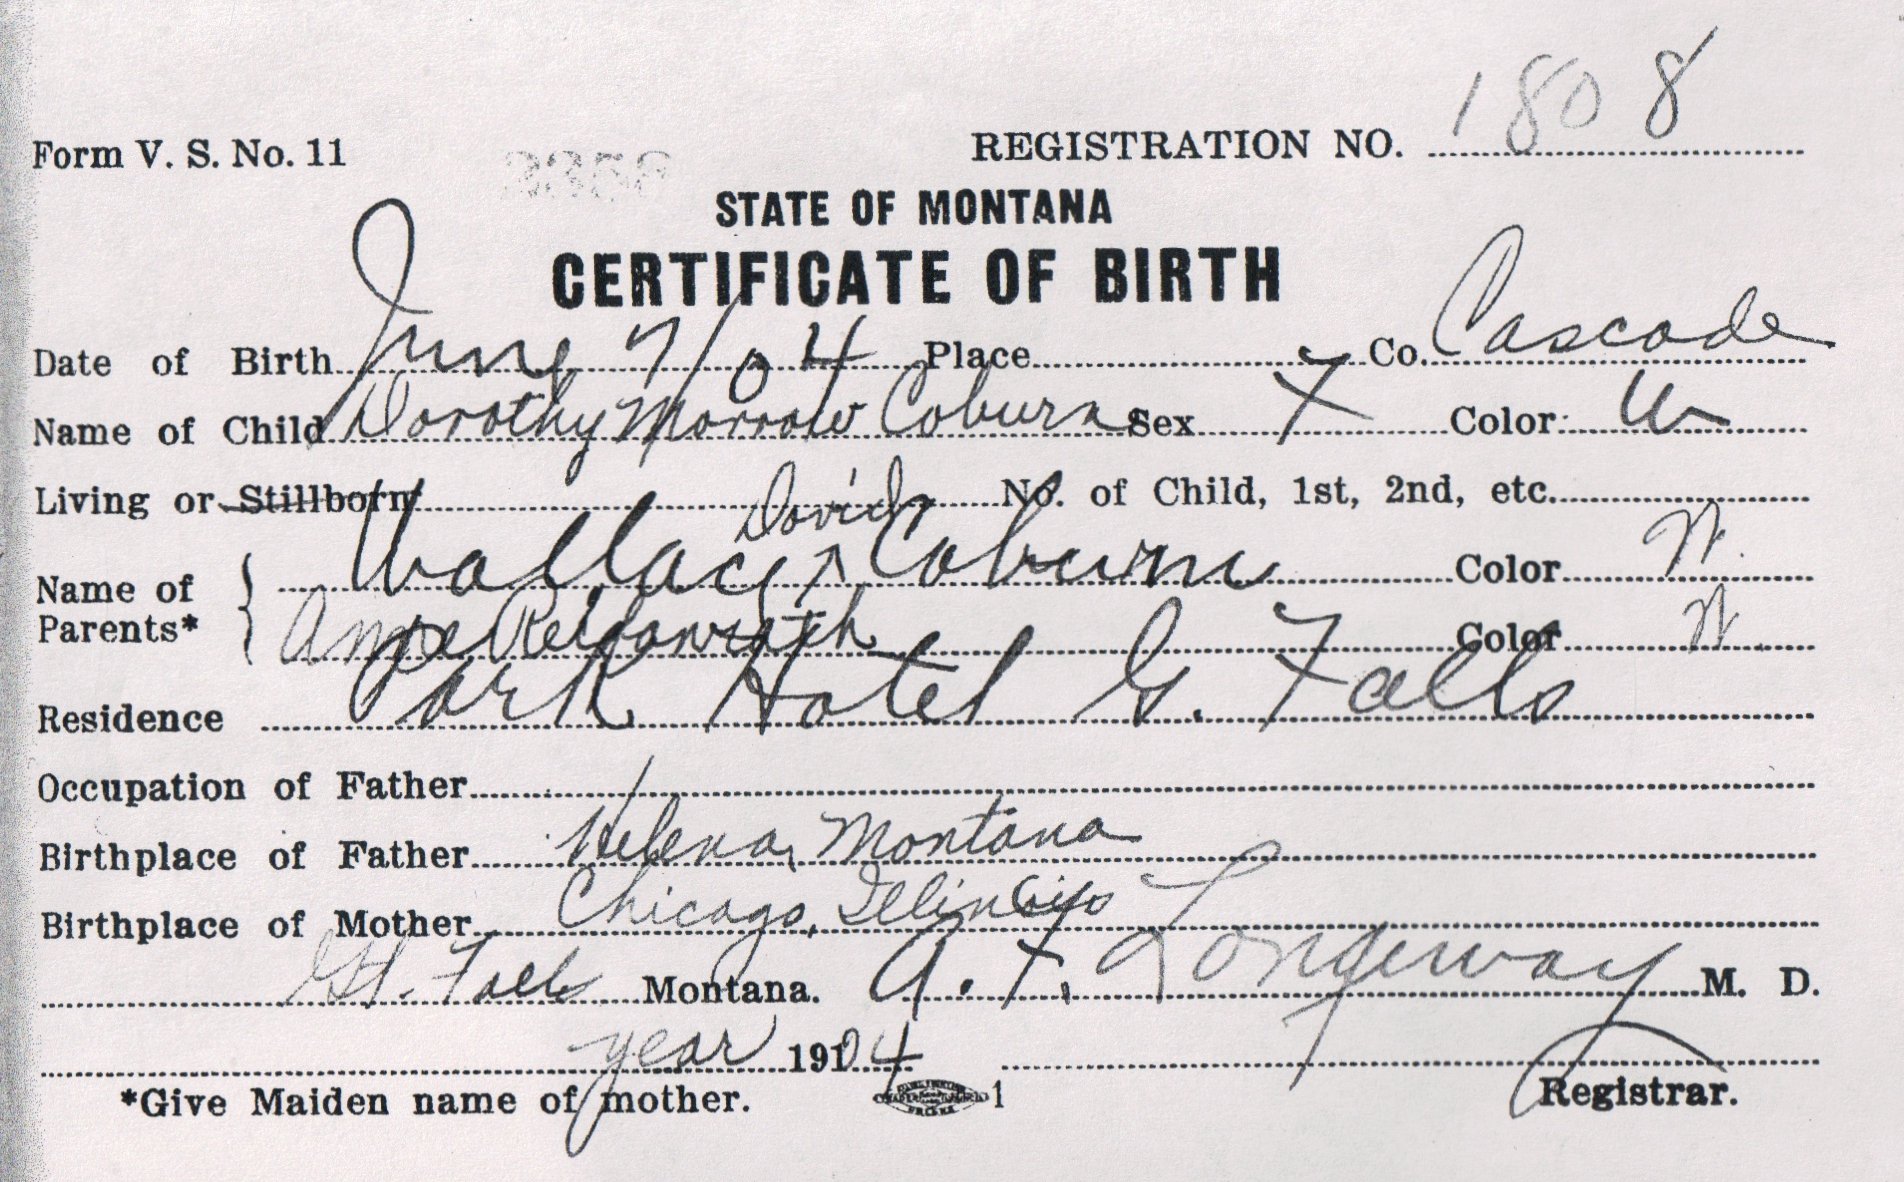 1808
Form V. S. No. 11 REGISTRATION NO.
STATE OF MONTANA
CERTIFICATE OF BIRTH
Date of Birth June 7/04 Place Co. Cascade
Name of Child Dorothy Morrow Coburn Sex F Color W
Living or Stillborn No. of Child, 1st, 2nd, etc.
David
Name of Parents* Wallace Coburn Color W.
Anna Color W.
Residence Park Hotel G. Falls
Occupation of Father
Birthplace of Father Helena, Montana
Birthplace of Mother Chicago, Illinois
Gt. Falls Montana. A. F. Longeway M. D.
year 1904 Registrar.
*Give Maiden name of mother. 1